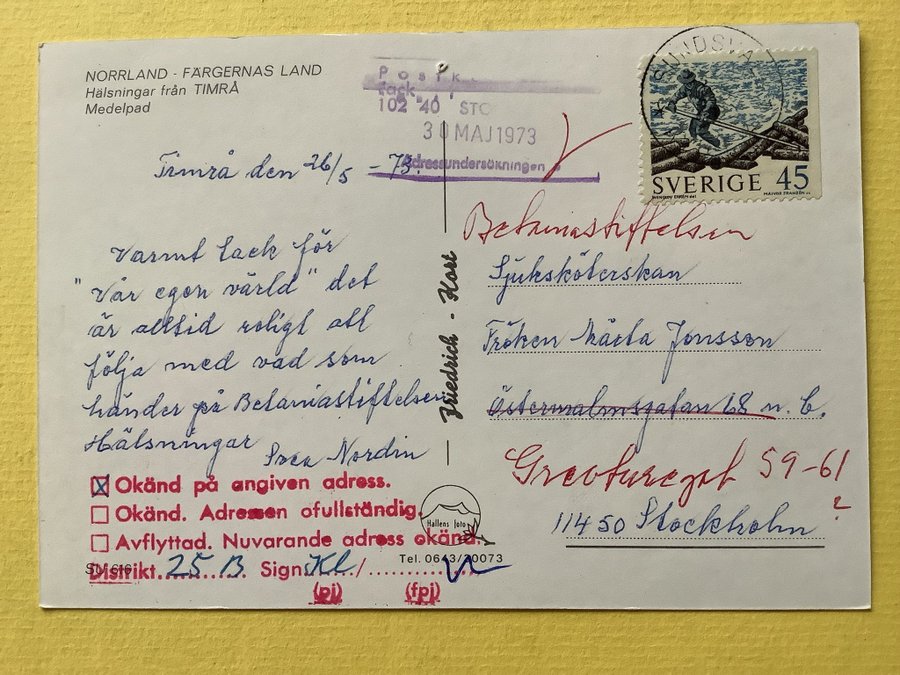 NORRLAND - FÄRGERNAS LAND
Hälsningar från TIMRÅ
Medelpad
Postk
fack
102 40 STO
30 MAJ 1973
Adressundersökningen
SUNDSVA
SVERIGE 45
Timrå den 26/5 - 73.
Varmt tack för
"Vår egen värld" det
är alltid roligt att
följa med vad som
händer på Betaniastiftelsen
Hälsningar
Svea Nordin
Friedrich - Kort
Betaniastiftelsen
Sjuksköterskan
Fröken Märta Jonsson
Östermalmsgatan 68 n. b.
Grevturegat 59-61
?
11450 Stockholm
☒ Okänd på angiven adress.
☐ Okänd. Adressen ofullständig.
☐ Avflyttad. Nuvarande adress okänd.
Distrikt 25 B Sign Kl /
(pi) (fpi)
Hallens foto
Tel. 0643/20073